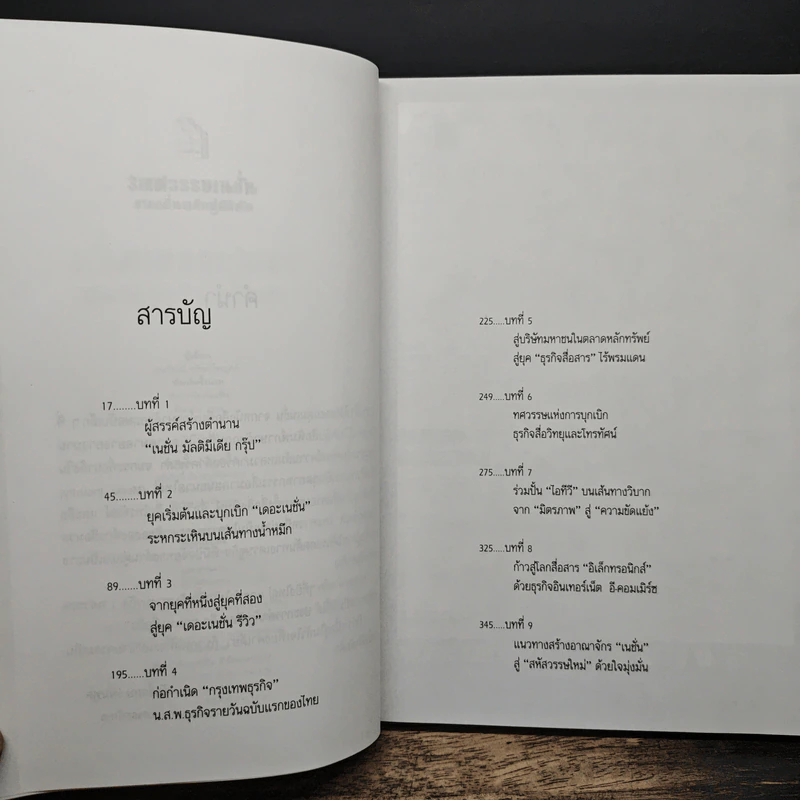 สารบัญ
17........บทที่ 1
ผู้สรรค์สร้างตำนาน
“เนชั่น มัลติมีเดีย กรุ๊ป”
45......บทที่ 2
ยุคเริ่มต้นและบุกเบิก “เดอะเนชั่น”
ระหกระเหินบนเส้นทางน้ำหมึก
89......บทที่ 3
จากยุคที่หนึ่งสู่ยุคที่สอง
สู่ยุค “เดอะเนชั่น รีวิว”
195......บทที่ 4
ก่อกำเนิด “กรุงเทพธุรกิจ”
น.ส.พ.ธุรกิจรายวันฉบับแรกของไทย
225.....บทที่ 5
สู่บริษัทมหาชนในตลาดหลักทรัพย์
สู่ยุค “ธุรกิจสื่อสาร” ไร้พรมแดน
249.....บทที่ 6
ทศวรรษแห่งการบุกเบิก
ธุรกิจสื่อวิทยุและโทรทัศน์
275.....บทที่ 7
ร่วมปั้น “ไอทีวี” บนเส้นทางวิบาก
จาก “มิตรภาพ” สู่ “ความขัดแย้ง”
325.....บทที่ 8
ก้าวสู่โลกสื่อสาร “อิเล็กทรอนิกส์”
ด้วยธุรกิจอินเทอร์เน็ต อี-คอมเมิร์ซ
345.....บทที่ 9
แนวทางสร้างอาณาจักร “เนชั่น”
สู่ “สหัสวรรษใหม่” ด้วยใจมุ่งมั่น